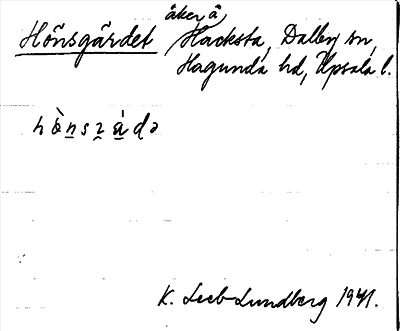 åker å
Hönsgärdet Hacksta, Dalby sn,
Hagunda hd, Upsala l.
hò̤n̲sʒ̲á̤ḍə
K. Leeb-Lundberg 1941.